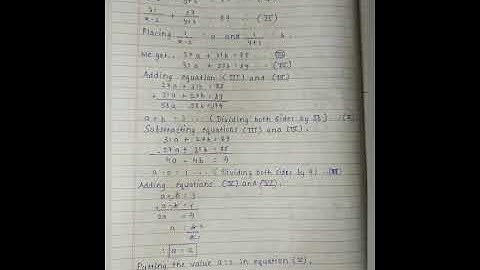 31/x-2 + 27/y+3 = 89 ... (II)
Placing 1/x-2 = a and 1/y+3 = b.
We get, 27a + 31b = 85 ... (III)
31a + 27b = 89 ... (IV)
Adding equation (III) and (IV)
27a + 31b = 85
+ 31a + 27b = 89
58a 58b = 174
a + b = 3 ... (Dividing both sides by 58) ... (V)
Subtracting equations (III) and (IV).
31a + 27b = 89
- 27a + 31b = 85
4a - 4b = 4
a - b = 1 ... (Dividing both sides by 4) ... (VI)
Adding equations (V) and (VI).
a + b = 3
+ a - b = 1
2a = 4
a = 4/2
∴ a = 2
Putting the value a = 2 in equation (V).